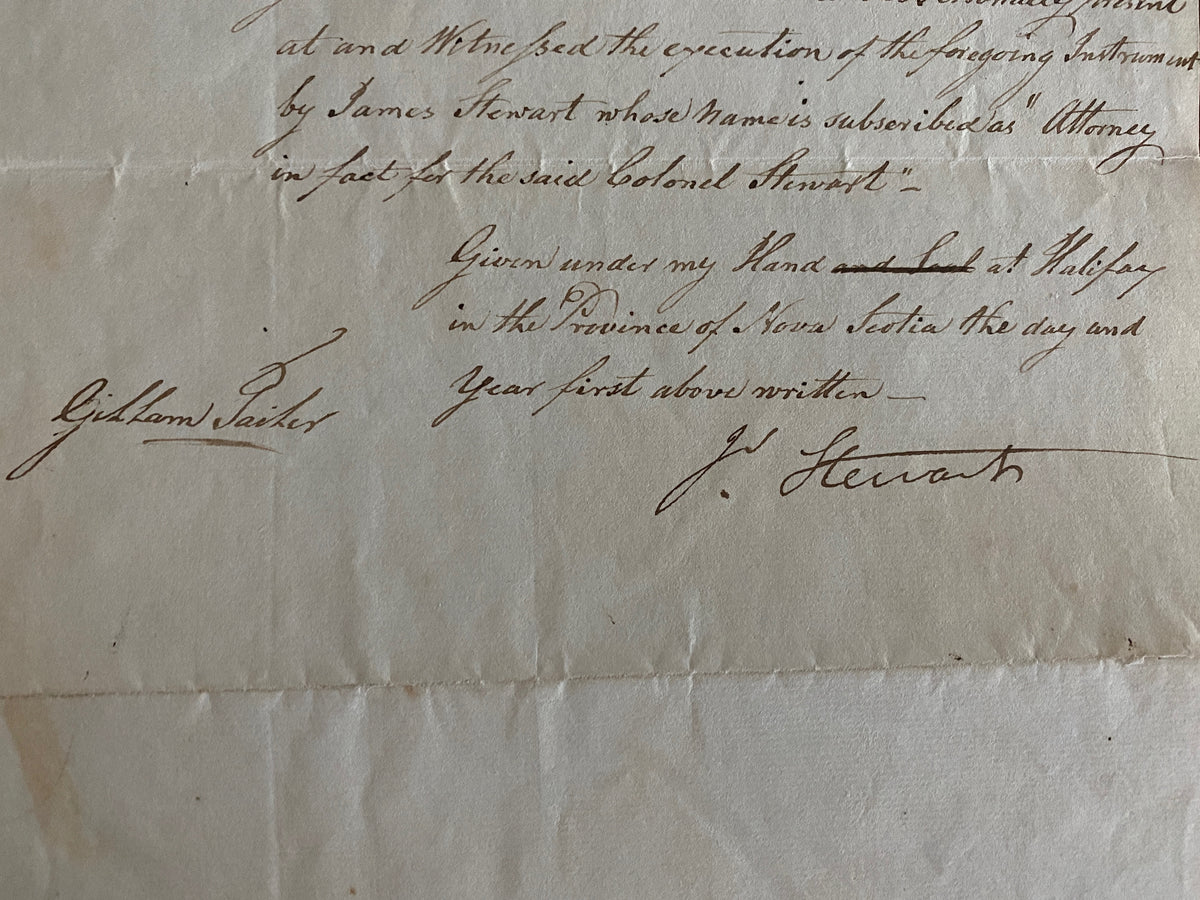 personally present
at and Witnessed the execution of the foregoing Instrument
by James Stewart whose name is subscribed as "Attorney
in fact for the said Colonel Stewart"—
Given under my Hand and Seal at Halifax
in the Province of Nova Scotia the day and
Year first above written—
Gillam Tailer
Js. Stewart